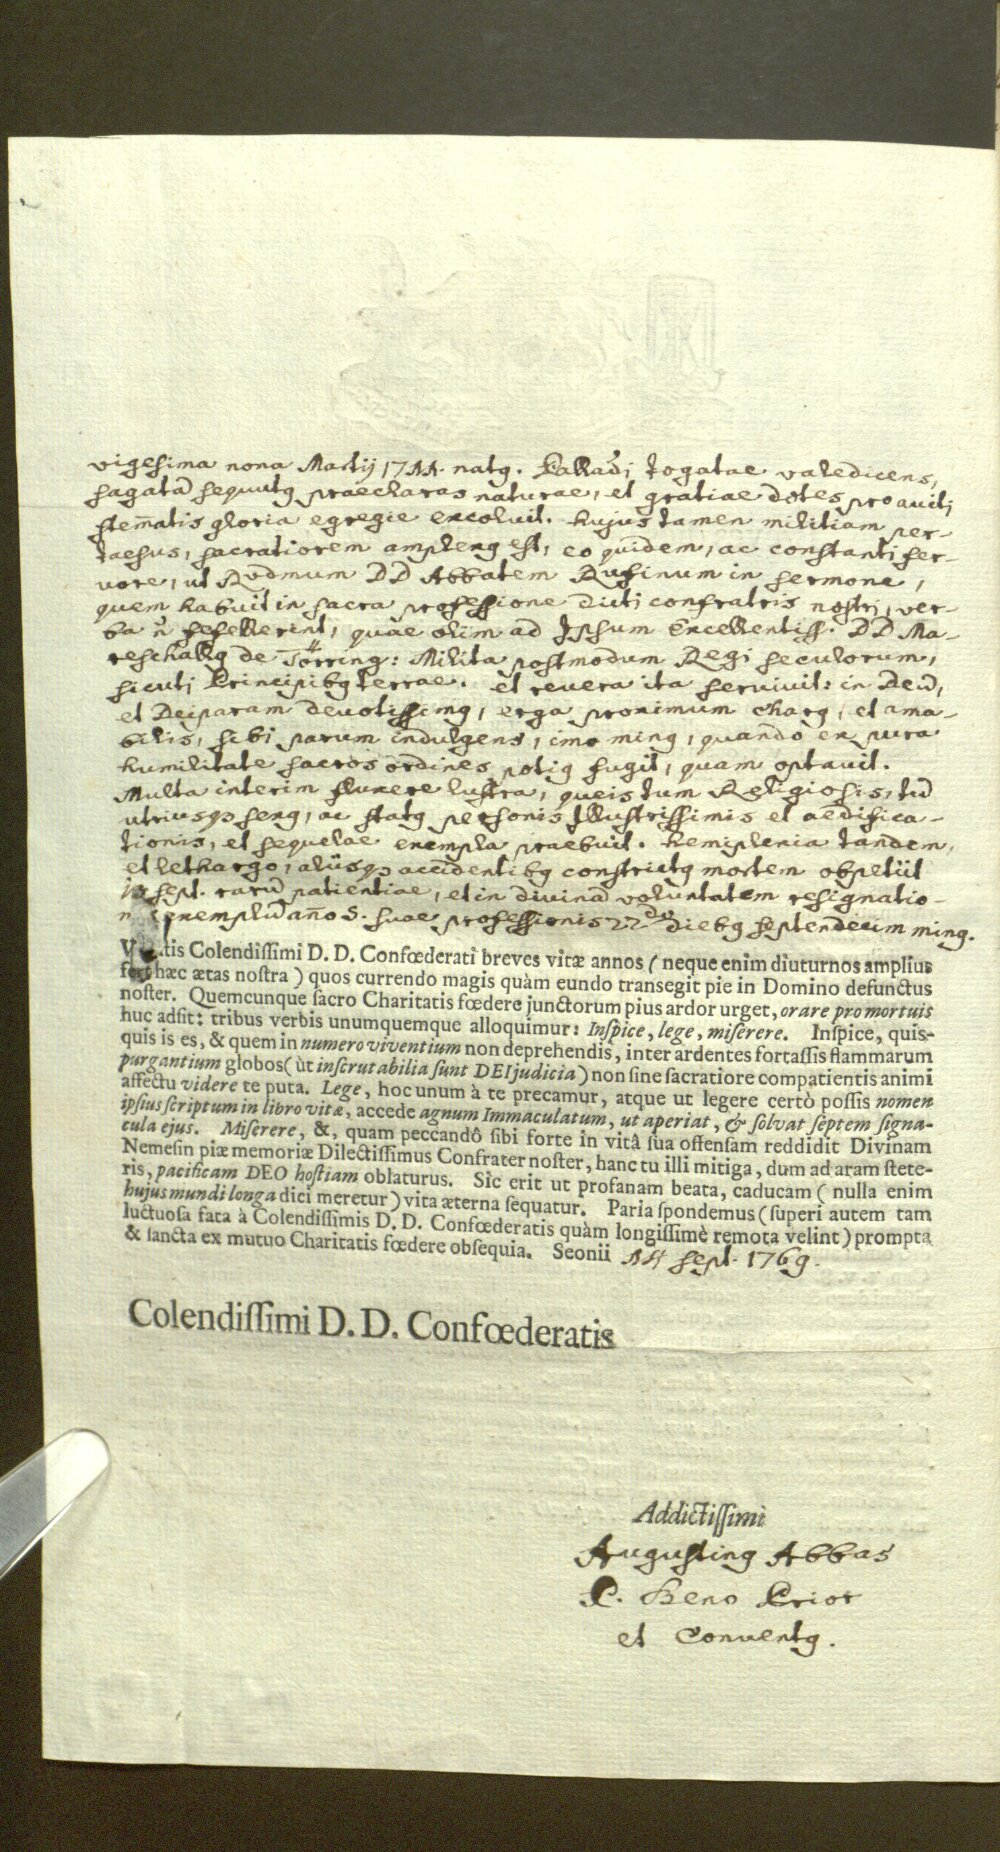 vigesima nona Martij 1744. natg. Palladi togatae valedicens,
sagatã sequutg praeclaras naturae, et gratiae dotes pro aviti
stem̃atis gloria egregie excoluit. hujus tamen militiam per-
taesus, sacratiorem amplexg est, eo quidem, ac constanti fer-
vore, ut Rvdmum DD Abbatem Rufinum in sermone,
quem habuit in sacra professione dicti confratris nostri, ver-
ba ñ fefellerint, quae olim ad Ipsum Excellentiss. DD Ma-
reschallg de Törring: Milita postmodum Regi seculorum,
sicuti Principibg terrae. et revera ita servivit: in Deũ,
et Deiparam devotissimg, erga proximum charg, et ama-
bilis, sibi parum indulgens, imo ming, quando ex pura
humilitate sacros ordines potig fugit, quam optavit.
Multa interim fluxere lustra, queis tum Religiosis, tũ
utriusqз sexg, ac statg personis Illustrissimis et aedifica-
tionis, et sequelae exempla praebuit. hemiplexia tandem,
et lethargo, aliisqз accidentibg constrictg mortem obpetiit
sept. rarũ patientiae, et in divinã voluntatem resignatio-
exemplũ año S. suae professionis 22do diebg septendecim ming.
Colendiſſimi D. D. Confœderati breves vitæ annos ( neque enim diuturnos amplius
fert hæc ætas noſtra ) quos currendo magis quàm eundo transegit pie in Domino defunctus
noſter. Quemcunque ſacro Charitatis fœdere junctorum pius ardor urget, orare pro mortuis
huc adſit: tribus verbis unumquemque alloquimur: Inſpice, lege, miſerere. Inſpice, quis-
quis is es, & quem in numero viventium non deprehendis, inter ardentes fortaſſis flammarum
purgantium globos ( ùt inſcrutabilia ſunt DEI judicia ) non ſine ſacratiore compatientis animi
affectu videre te puta. Lege, hoc unum à te precamur, atque ut legere certò poſſis nomen
ipſius ſcriptum in libro vitæ, accede agnum Immaculatum, ut aperiat, & ſolvat ſeptem ſigna-
cula ejus. Miſerere, &, quam peccandô ſibi forte in vitâ ſua offenſam reddidit Divinam
Nemeſin piæ memoriæ Dilectiſſimus Confrater noſter, hanc tu illi mitiga, dum ad aram ſtete-
ris, pacificam DEO hoſtiam oblaturus. Sic erit ut profanam beata, caducam ( nulla enim
hujus mundi longa dici meretur ) vita æterna ſequatur. Paria ſpondemus (ſuperi autem tam
luctuoſa fata à Colendiſſimis D. D. Confœderatis quàm longiſſimè remota velint ) prompta
& ſancta ex mutuo Charitatis fœdere obſequia. Seonii 14 sept. 1769.
Colendiſſimi D. D. Confœderatis
Addictiſſimi
Augusting Abbas
P. Beno Prior
et Conventg.